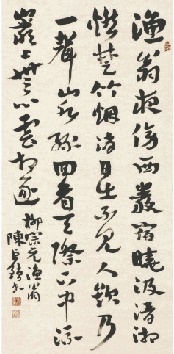 漁翁夜傍西巖宿曉汲清湘
燃楚竹烟消日出不見人欸乃
一聲山水綠回看天際下中流
巖上無心雲相逐
柳宗元漁翁
陳巨鎖書